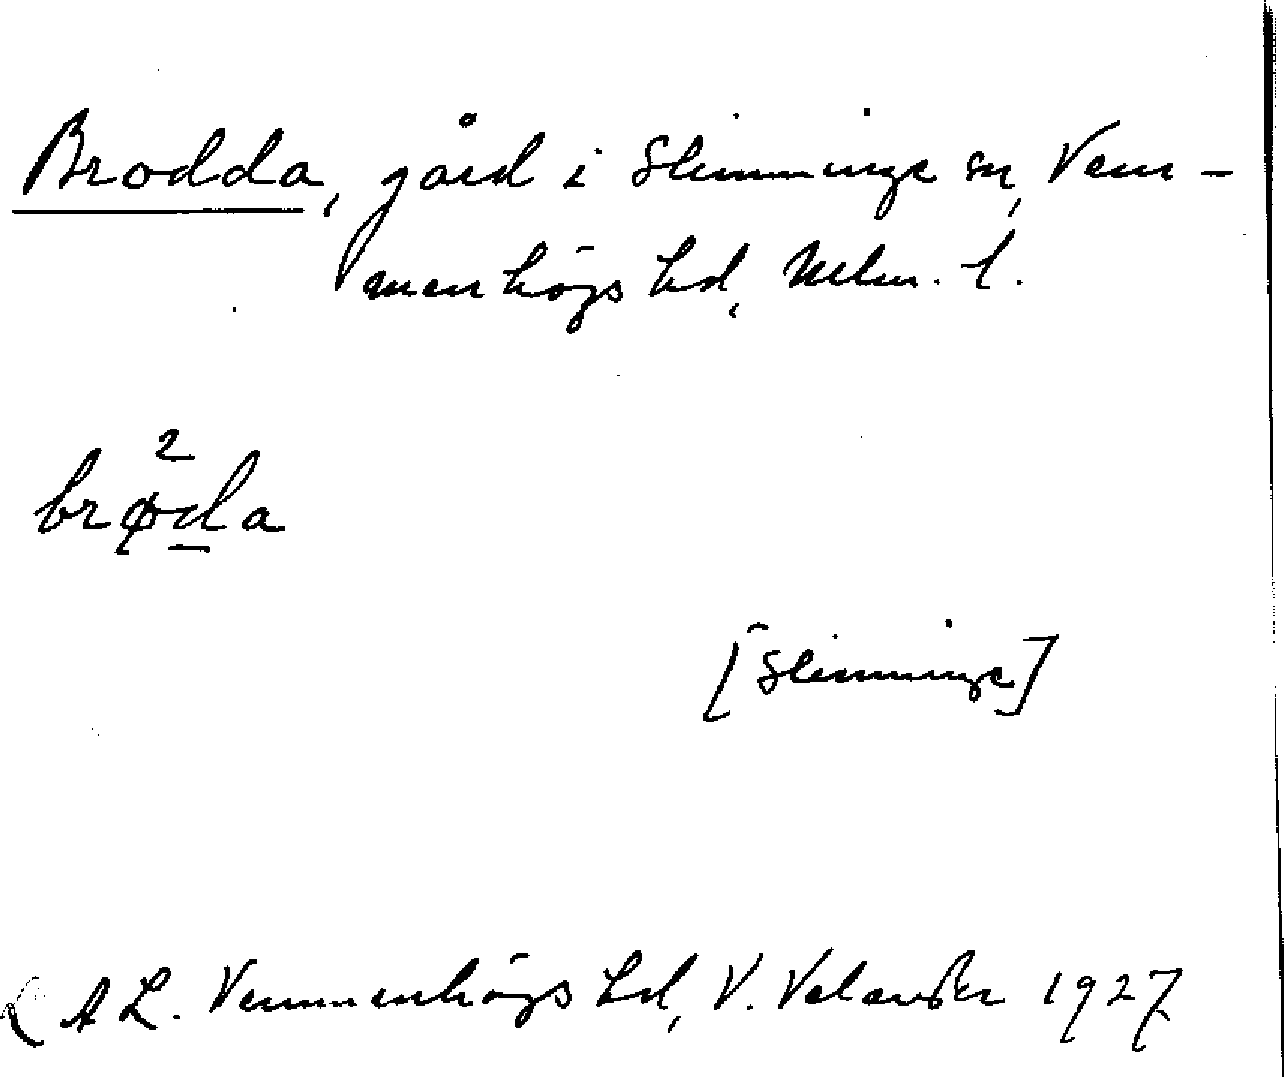 Brodda, gård i Slimminge sn, Vem-
menhögs hd, Mlm. l.
2
brøda
[Slimminge]
A L. Vemmenhögs hd, V. Velander 1927